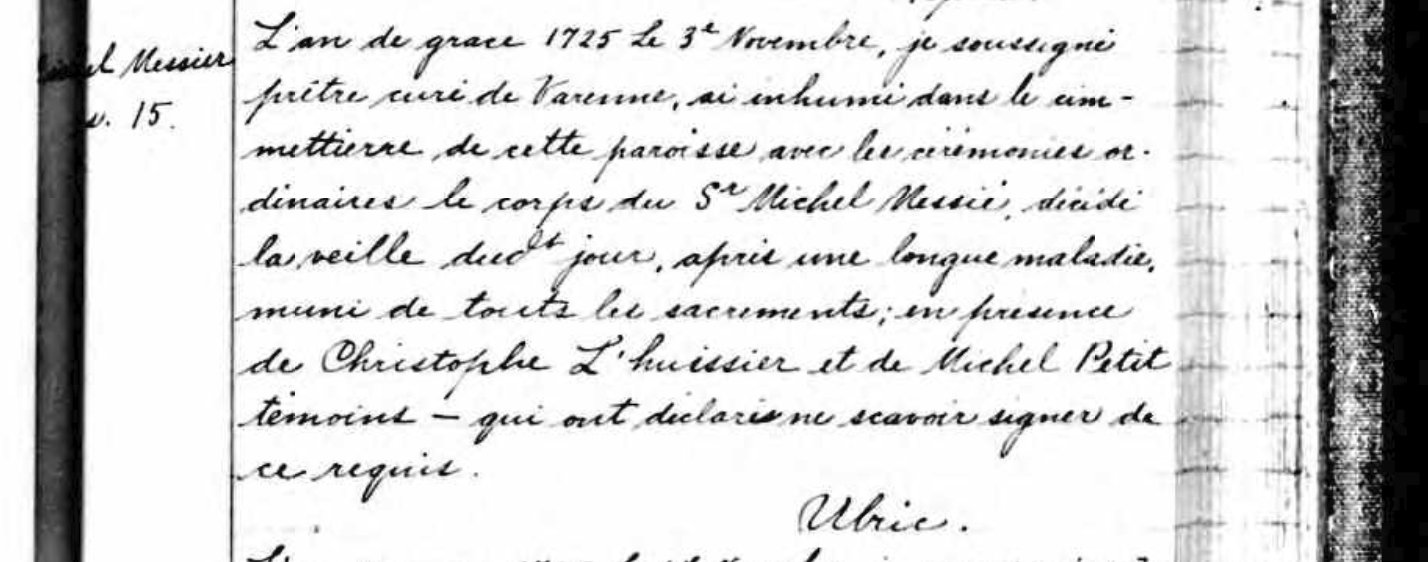 Messier
15.
L'an de grace 1725 le 3e Novembre, je soussigné
prêtre curé de Varenne, ai inhumé dans le cim-
mettierre de cette paroisse avec les cérémonies or-
dinaires le corps du Sr Michel Messié, décédé
la veille dudt jour, après une longue maladie,
muni de touts les sacrements; en présence
de Christophe L'huissier et de Michel Petit
témoins - qui ont déclarés ne scavoir signer de
ce requis.
Ulric.